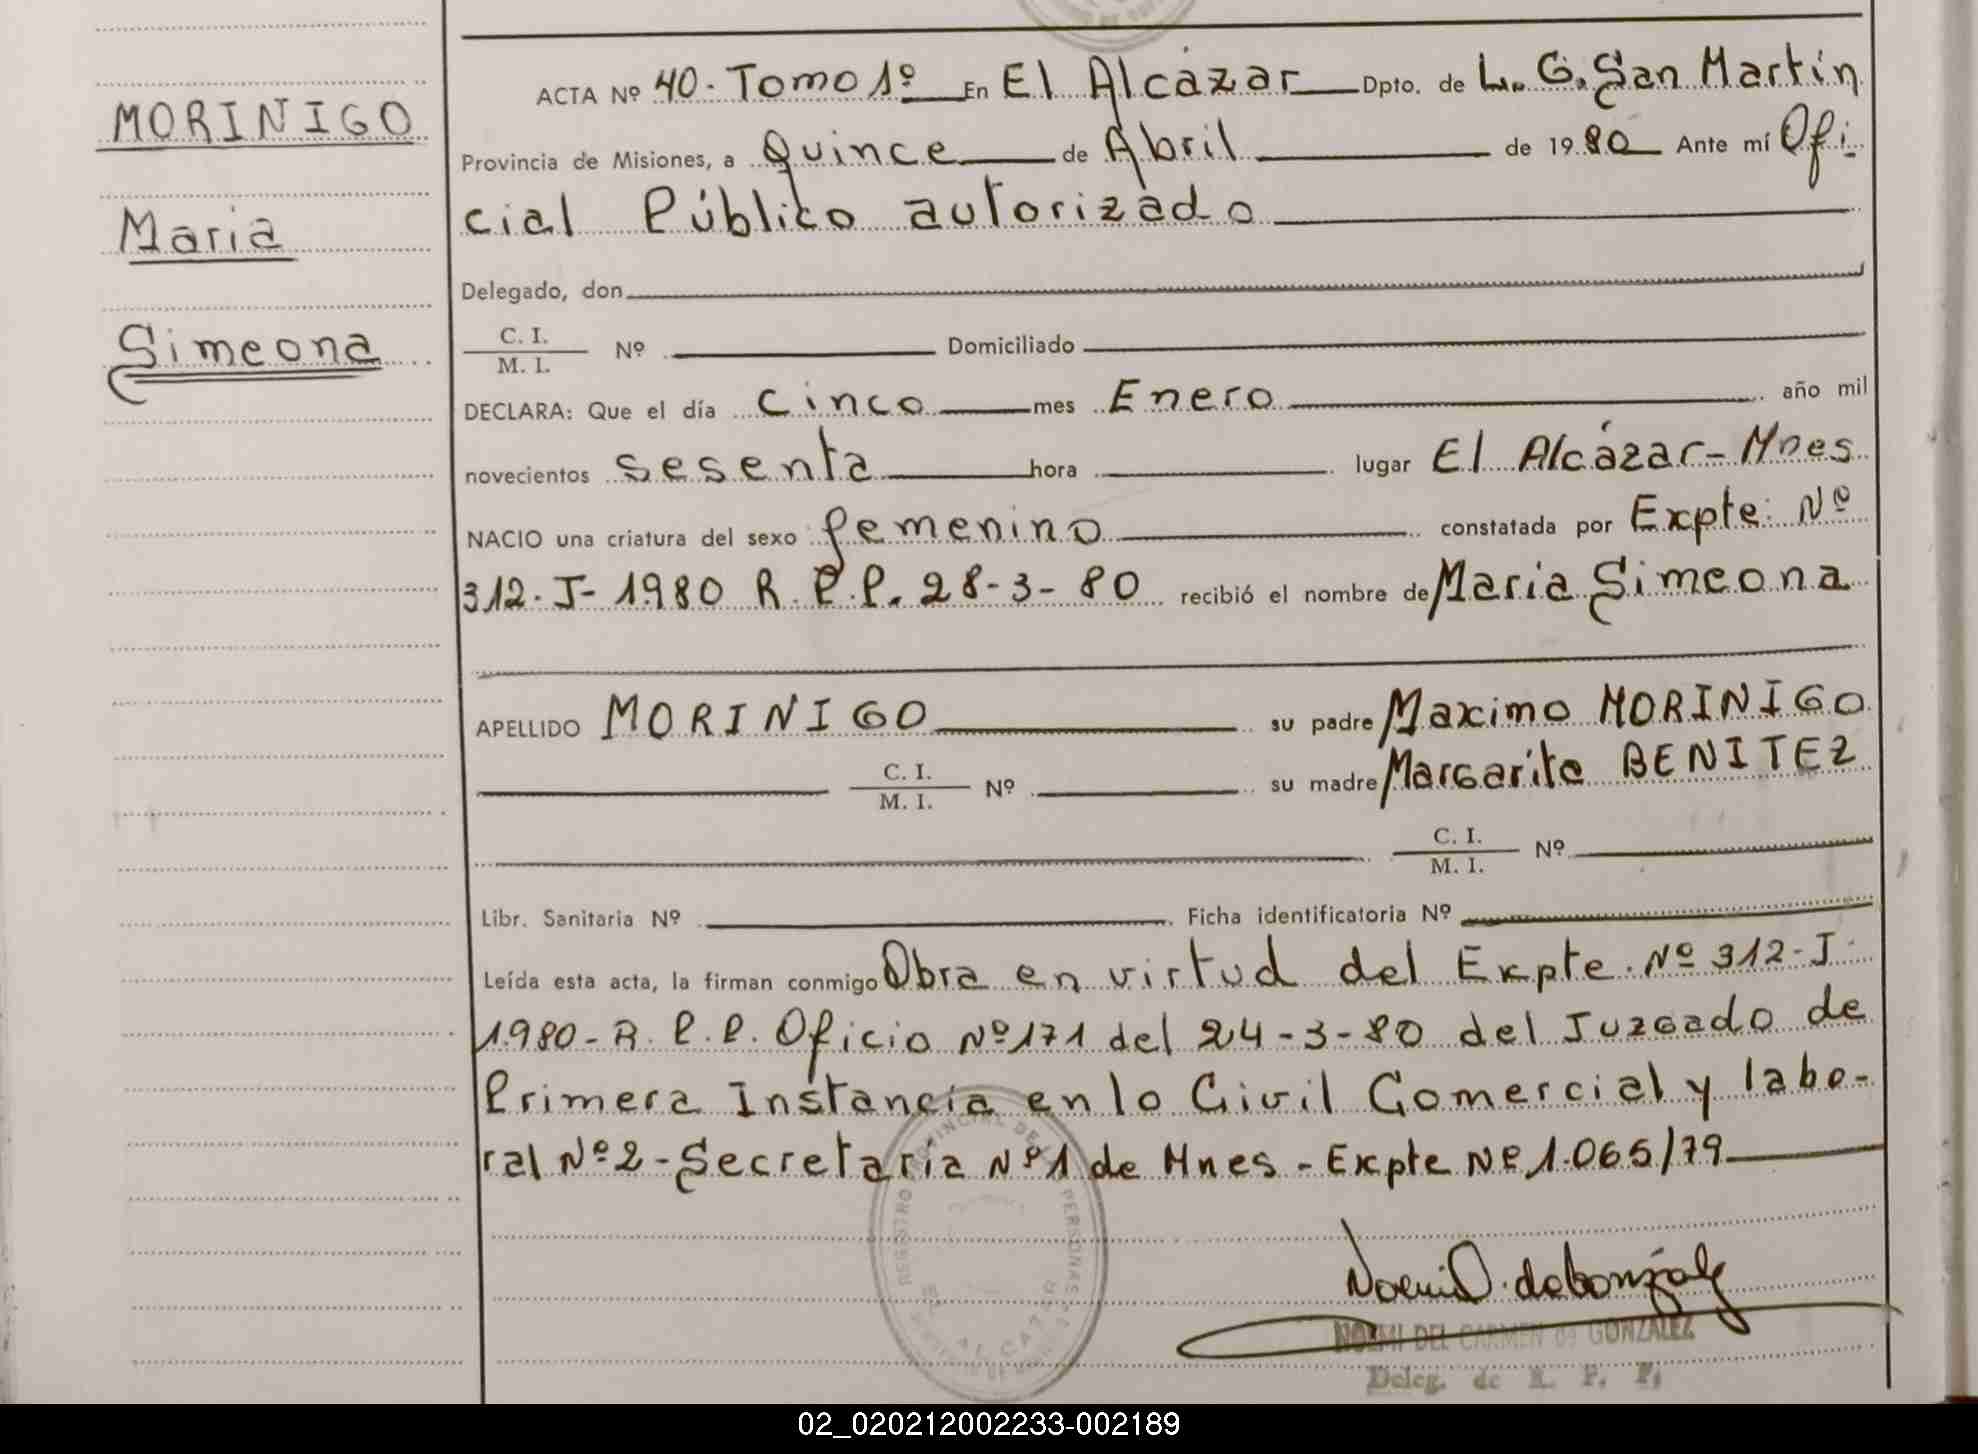 MORINIGO
Maria
Simeona
ACTA Nº 40. Tomo 1º En El Alcázar Dpto. de L. G. San Martín
Provincia de Misiones, a Quince de Abril de 1980 Ante mí Ofi-
cial Público autorizado
Delegado, don
C. I.
M. I.
Nº Domiciliado
DECLARA: Que el día cinco mes Enero año mil
novecientos sesenta hora lugar El Alcázar-Mnes
NACIO una criatura del sexo femenino constatada por Expte: Nº
312-J-1980 R. P. P. 28-3-80 recibió el nombre de Maria Simeona
APELLIDO MORINIGO su padre Maximo MORINIGO
C. I.
M. I.
Nº su madre Margarita BENITEZ
C. I.
M. I.
Nº
Libr. Sanitaria Nº Ficha identificatoria Nº
Leída esta acta, la firman conmigo Obra en virtud del Expte. Nº 312-J-
1980-R. P. P. Oficio Nº 171 del 24-3-80 del Juzgado de
Primera Instancia en lo Civil Comercial y labo-
ral Nº 2-Secretaría Nº 1 de Mnes-Expte Nº 1.065/79
REGISTRO PROVINCIAL DE PERSONAS
EL ALCAZAR
NOEMI DEL CARMEN de GONZALEZ
Deleg. de R. P. P.
02_020212002233-002189